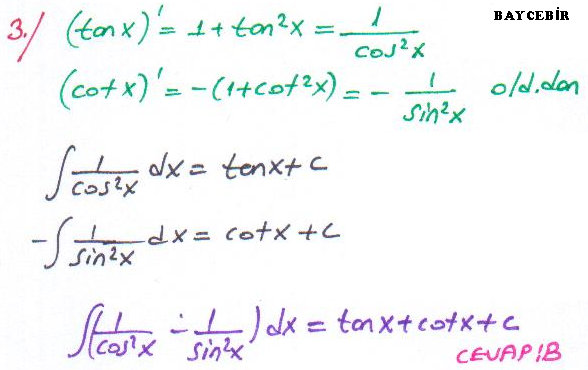 BAYCEBİR
3./ (tanx)' = 1+tan²x = 1/cos²x
(cotx)' = -(1+cot²x) = - 1/sin²x old.dan
∫ 1/cos²x dx = tanx + c
-∫ 1/sin²x dx = cotx + c
∫(1/cos²x - 1/sin²x) dx = tanx + cotx + c
CEVAP:B